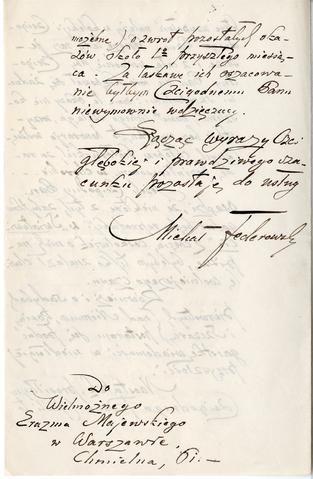 możebne) o zwrot pozostałych oka-
zów około 1go przyszłego miesią-
ca. Za łaskawe ich oszacowa-
nie byłbym Czcigodnemu Panu
niewymownie wdzięczny.
Łącząc wyrazy Czci
głębokiej i prawdziwego sza-
cunku pozostaję do usług
Michał Federowski
Do
Wielmożnego
Erazma Majewskiego
w Warszawie,
Chmielna, 61.—